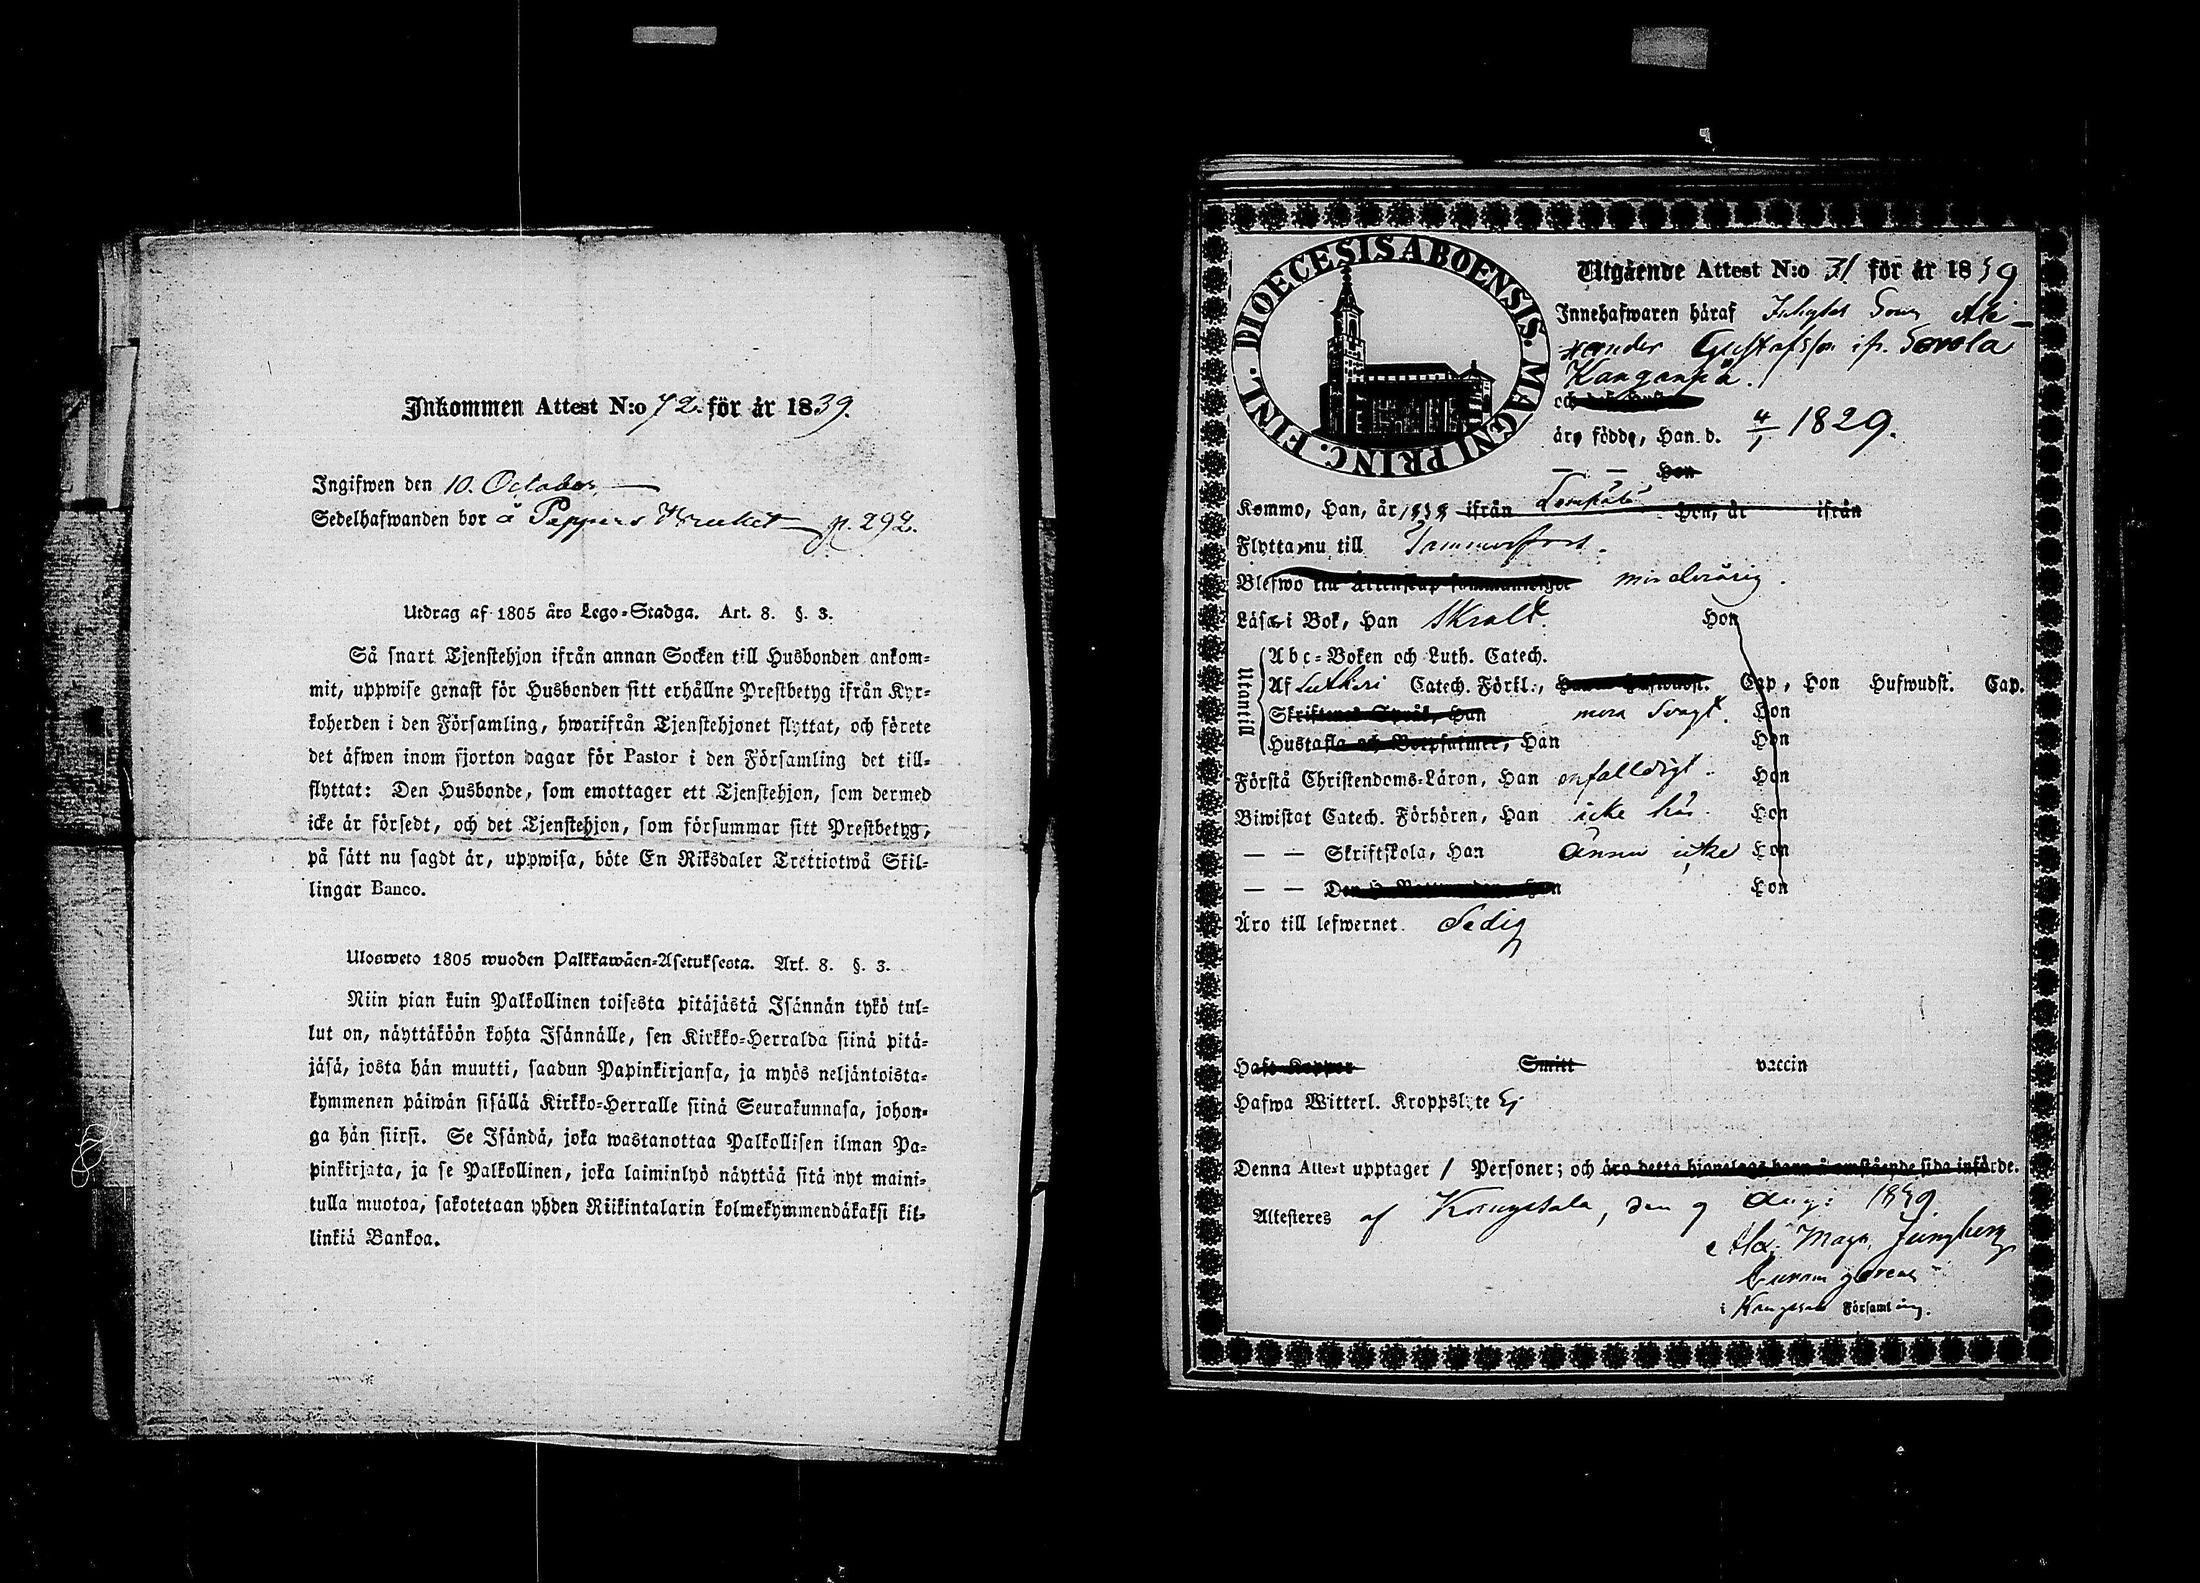 Inkommen Attest N:o 72. för år 1839.
Ingifwen den 10. October.
Sedelhafwanden bor å Pappers Bruket p. 292.
Utdrag af 1805 års Lego-Stadga. Art. 8. §. 3.
Så snart Tjenstehjon ifrån annan Socken till Husbonden ankom-
mit, uppwise genast för Husbonden sitt erhållne Prestbetyg ifrån Kyr-
koherden i den Församling, hwarifrån Tjenstehjonet flyttat, och förete
det äfwen inom fjorton dagar för Pastor i den Församling det till-
flyttat: Den Husbonde, som emottager ett Tjenstehjon, som dermed
icke är försedt, och det Tjenstehjon, som försummar sitt Prestbetyg,
på sätt nu sagdt är, uppwisa, böte En Riksdaler Trettiotwå Skil-
lingar Banco.
Ulosweto 1805 wuoden Palkkawäen-Asetuksesta. Art. 8. §. 3.
Niin pian kuin Palkollinen toisesta pitäjästä Isännän tykö tul-
lut on, näyttäköön kohta Isännälle, sen Kirkko-Herralda siinä pitä-
jäsä, josta hän muutti, saadun Papinkirjansa, ja myös neljäntoista-
kymmenen päiwän sisällä Kirkko-Herralle siinä Seurakunnasa, johon-
ga hän siirsi. Se Isändä, joka wastanottaa Palkollisen ilman Pa-
pinkirjata, ja se Palkollinen, joka laiminlyö näyttää sitä nyt maini-
tulla muotoa, sakotetaan yhden Riikintalarin kolmekymmendäkaksi kil-
linkiä Bankoa.
DIOECESIS ABOENSIS. MAGNI PRINC. FINL.
Utgående Attest N:o 31 för år 1839
Innehafwaren häraf Inhyses Son Ale-
xander Gustafsson ifr. Sorola
Kanganpä.
och
äro födde, Han d. 4/1 1829.
— — Hon
Kommo, Han, år 1838 ifrån Lempälä Hon, år ifrån
Flytta nu till Tammerfors.
Blefwo till Ärtenskap sammanwigde minderårig.
Läsa i Bok, Han Skralt. Hon
Utantill
Abc-Boken och Luth. Catech.
Af Lutheri Catech. Förkl., Cap, Hon Hufwudst. Cap.
Skriftenes Språk, Han mera Svagt. Hon
Hustafla och Botpsalmer, Han Hon
Förstå Christendoms-Läran, Han enfalldigt. Hon
Biwistat Catech. Förhören, Han icke här. Hon
— — Skriftskola, Han Ännu icke Hon
— — Hon
Äro till lefwernet Sedig
Haft Koppor Smitt vaccin
Hafwa Witterl. Kroppslyte Ej
Denna Attest upptager 1 Personer; och äro detta hjonelags barn å omstående sida införde.
Attesteres af Kangasala, den 9 Aug: 1839.
Alex: Magn. Jungberg
i Kangasala Församling.